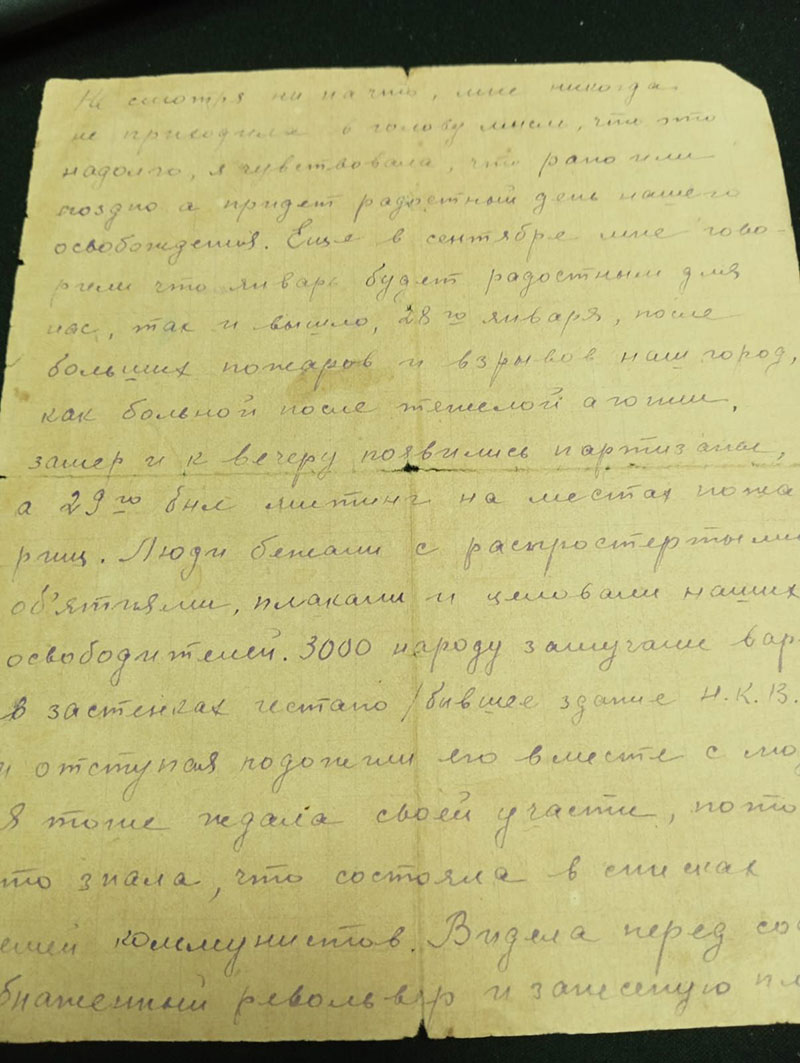 Не смотря ни на что, мне никогда
не приходила в голову мысль, что это
надолго, я чувствовала, что рано или
поздно а придет радостный день нашего
освобождения. Еще в сентябре мне гово-
рили что январь будет радостным для
нас, так и вышло, 28го января, после
больших пожаров и взрывов наш город,
как больной после тяжелой агонии,
замер и к вечеру появились партизаны,
а 29го был митинг на местах пожа
рищ. Люди бежали с распростертыми
об'ятиями, плакали и целовали наших
освободителей. 3000 народу замучали вар
в застенках гестапо /бывшее здание Н.К.В.
и отступая подожгли его вместе с лю
Я тоже ждала своей участи, пото
что знала, что состояла в списках
емей коммунистов. Видела перед соб
бнаженный револьвер и занесеную пл